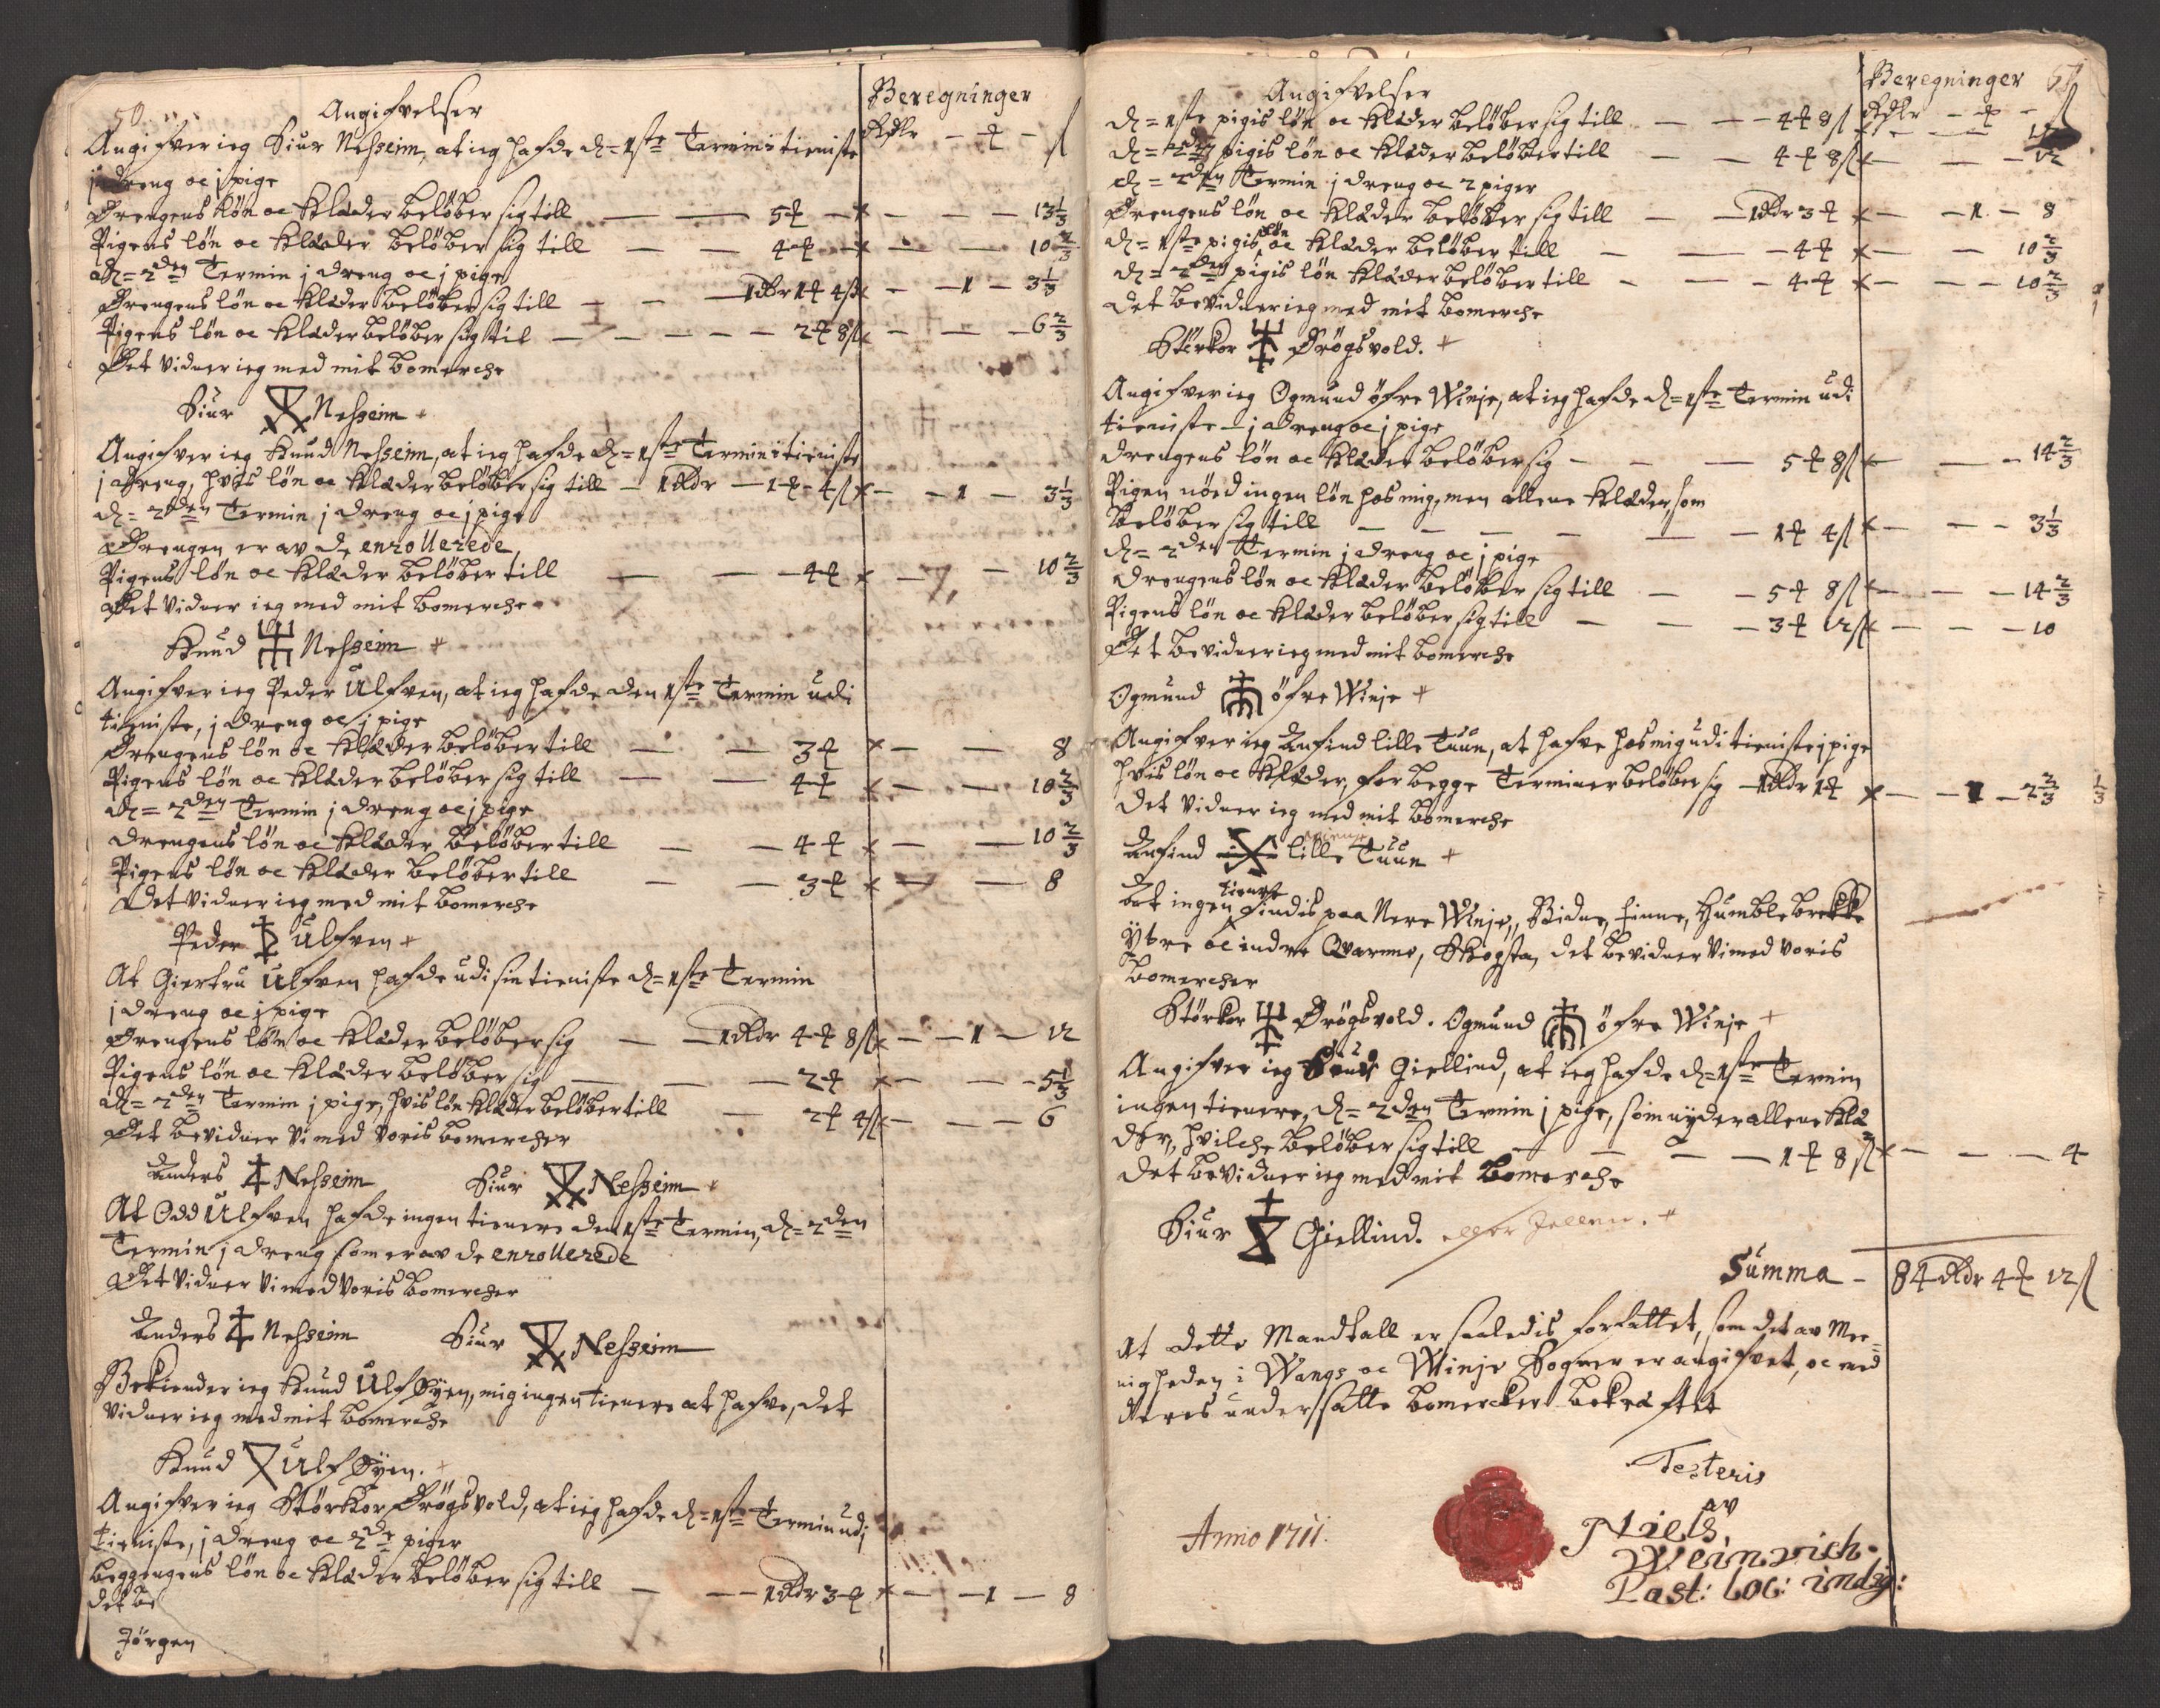 50.
Angifvelser
Beregninger
Angifver ieg Siur Nesheim, at ieg hafde d= 1ste Termin i tieniste
Rdlr - ꝑ - ß
j dreng oc j pige
Drengens løn oc Klæder beløber sig till — — 5 ꝑ — x — — — 13 1/3
Pigens løn oc Klæder beløber sig till — — 4 ꝑ — x — — — 10 2/3
d= 2den Termin j dreng oc j pige
Drengens løn oc Klæder beløber sig till — — 1 Rdr 1 ꝑ 4 ß x — — 1 — 3 1/3
Pigens løn oc Klæder beløber sig til — — — — 2 ꝑ 8 ß x — — — 6 2/3
Det vidner ieg med mit bomerche
Siur Nesheim +
Angifver ieg Knud Nesheim, at ieg hafde d= 1ste Termin i tieniste
j dreng, hvis løn oc Klæder beløber sig till — 1 Rdr — 1 ꝑ - 4 ß x — — 1 — 3 1/3
d= 2den Termin j dreng oc j pige
Drengen er av de enrollerede
Pigens løn oc Klæder beløber till — — 4 ꝑ x — — 10 2/3
Det vidner ieg med mit bomerche
Knud Nesheim +
Angifver ieg Peder Ulfven, at ieg hafde den 1ste Termin udi
tieniste, j dreng oc j pige
Drengens løn oc Klæder beløber till — — 3 ꝑ x — — 8
Pigens løn oc Klæder beløber sig till — — 4 ꝑ x — — 10 2/3
d= 2den Termin j dreng oc j pige
drengens løn oc Klæder beløber till — — 4 ꝑ x — — 10 2/3
Pigens løn oc Klæder beløber till — — 3 ꝑ x — — 8
Det vidner ieg med mit bomerche
Peder Ulfven +
At Giertru Ulfven hafde udi sin tieniste d= 1ste Termin
j dreng oc j pige
Drengens løn oc Klæder beløber sig — — 1 Rdr 4 ꝑ 8 ß x — — 1 — 12
Pigens løn oc Klæder beløber sig — — — 2 ꝑ x — — — 5 1/3
d= 2den Termin j pige, hvis løn Klæder beløber till — 2 ꝑ 4 ß x — — — 6
Det bevidner vi med voris bomercher
Anders Nesheim Siur Nesheim +
At Odd Ulfven hafde ingen tienere den 1ste Termin, d= 2den
Termin j dreng som er av de enrollerede
Det vidner vi med voris bomercher
Anders Nesheim Siur Nesheim
Bekiender ieg Knud UlfØyen, mig ingen tienere at hafve, det
vidner ieg med mit bomerche
Knud UlfØyen. +
Angifver ieg Størkor Drøgsvold, at ieg hafde d= 1ste Termin udi
tieniste, j dreng oc 2de piger
løn oc Klæder beløber sig till — — 1 Rdr 3 ꝑ x — — 1 — 8
det be
Jørgen
Angifvelser
Beregninger
d= 1ste pigis løn oc Klæder beløber sig till — — 4 ꝑ 8 ß Rdlr - ꝑ - ß
d= 2den pigis løn oc Klæder beløber till — — 4 ꝑ 8 ß x — — — 12
d= 2den Termin j dreng oc 2 piger
Drengens løn oc Klæder beløber sig till — — 1 Rdr 3 ꝑ x — — 1 — 8
d= 1ste pigis løn oc Klæder beløber till — — 4 ꝑ x — — 10 2/3
d= 2den pigis løn Klæder beløber till — — — 4 ꝑ x — — — 10 2/3
det bevidner ieg med mit bomerche
Størkor Drøgsvold. +
Angifver ieg Ogmund øfre Winje, at ieg hafde d= 1ste Termin udi
tieniste — j dreng oc j pige
drengens løn oc Klæder beløber sig — — — 5 ꝑ 8 ß x — — 14 2/3
Pigen nøed ingen løn hos mig, men allene Klæder, som
beløber sig till — — — — — 1 ꝑ 4 ß x — — — 3 1/3
d= 2den Termin j dreng oc j pige
drengens løn oc Klæder beløber sig till — — 5 ꝑ 8 ß x — — — 14 2/3
Pigens løn oc Klæder beløber sig till — — — 3 ꝑ 12 ß x — — — 10
Det bevidner ieg med mit bomerche
Ogmund øfre Winje +
Angifver ieg Anfind lille Tuun, at hafve hos mig udi tieniste j pige
hvis løn oc Klæder, for begge Terminer beløber sig — 1 Rdr 1 ꝑ x — — 1 — 2 2/3 1/3
det vidner ieg med mit bomerche
Anfind lille Tuun +
At ingen tienere findis paa Nere Winje, Bidne, Finne, Humblebrekke
Ytre oc indre Qvarme, Skogsta, det bevidner vi med voris
bomercher
Størkor Drøgsvold. Ogmund øfre Winje +
Angifver ieg Siur Giellind, at ieg hafde d= 1ste Termin
ingen tienere, d= 2den Termin j pige, som nyder allene Klæ
der, hvilche beløber sig till — — — — 1 ꝑ 8 ß x — — — 4
det bevidner ieg med mit bomerche
Siur Giellind. eller +
Summa — 84 Rdr 4 ꝑ 12 ß
At dette Mandtall er saaledis forfattet, som det av Me=
nigheden i Wangs oc Winje Sogner er angifvet, oc med
deres undersatte bomercker bekræftet
Testeris
av
Anno 1711.
Niels
Weinwich.
Past: loc: indig: